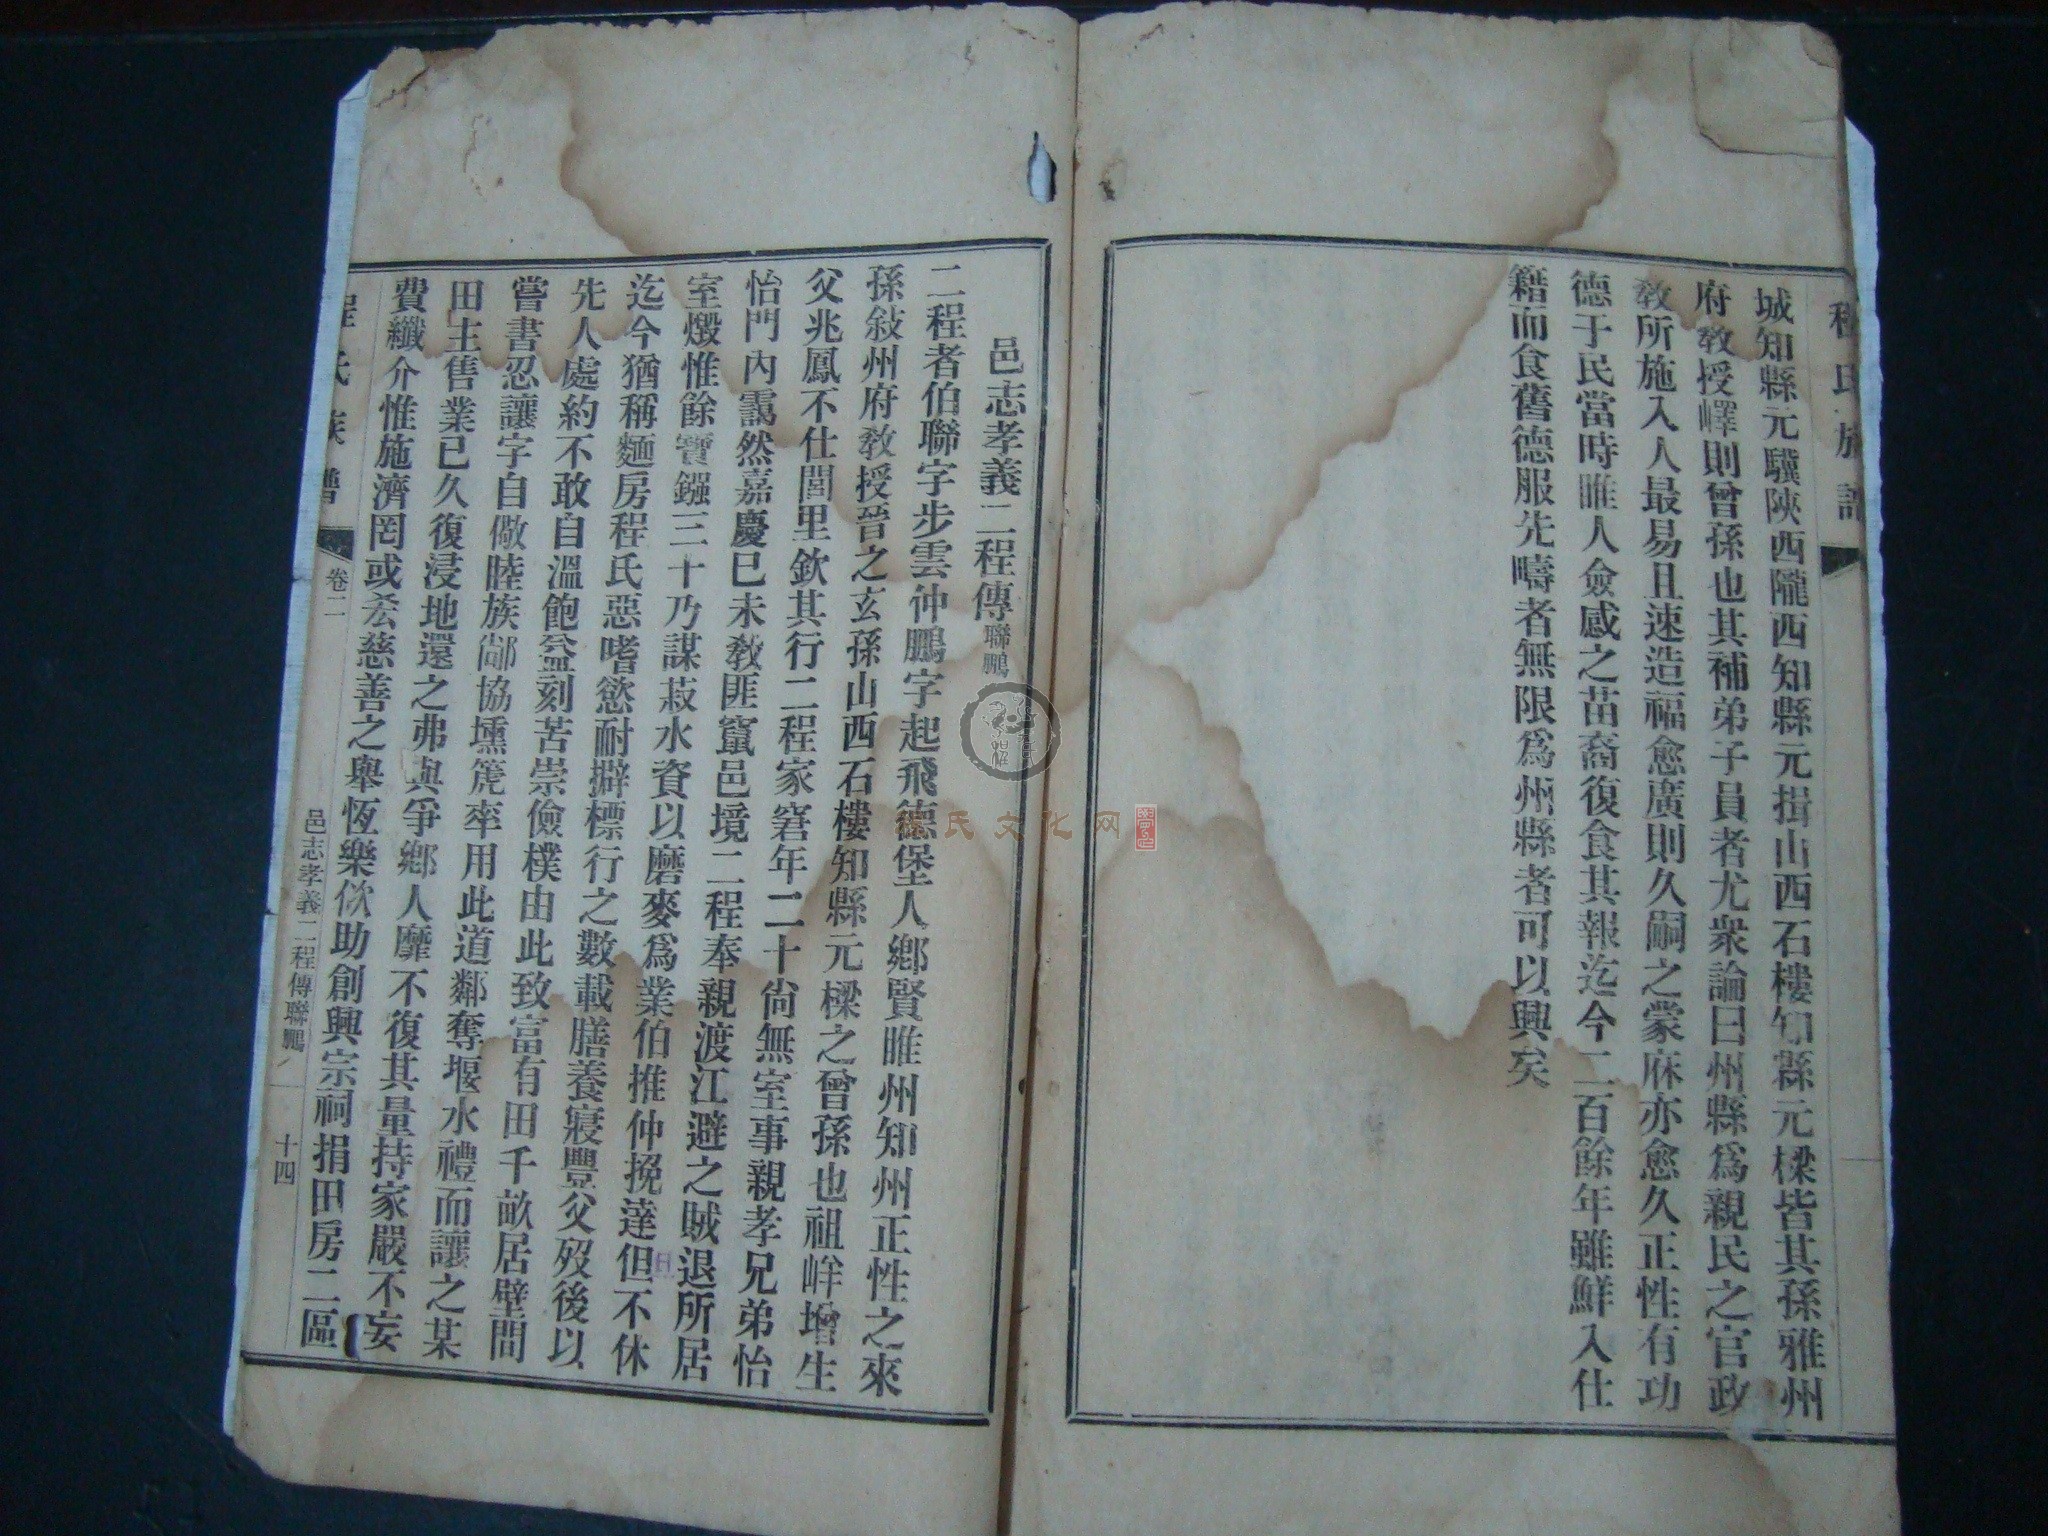 程氏族譜
城知縣元驥陝西隴西知縣元揖山西石樓知縣元樑皆其孫雅州
府教授嶧則曾孫也其補弟子員者尤衆論曰州縣爲親民之官政
教所施入人最易且速造福愈廣則久嗣之蒙庥亦愈久正性有功
德于民當時睢人僉感之苗裔復食其報迄今二百餘年雖鮮入仕
籍而食舊德服先疇者無限爲州縣者可以興矣
邑志孝義二程傳聯鵬
二程者伯聯字步雲仲鵬字起飛德堡人鄉賢睢州知州正性之來
孫敍州府教授晉之玄孫山西石樓知縣元樑之曾孫也祖峰增生
父兆鳳不仕閭里欽其行二程家窘年二十尙無室事親孝兄弟怡
怡門內靄然嘉慶已未教匪竄邑境二程奉親渡江避之賊退所居
室燬惟餘寶鏹三十乃謀菽水資以磨麥爲業伯推仲挽薘但不休
迄今猶稱麵房程氏惡嗜慾耐擗標行之數載膳養寢豐父歿後以
先人處約不敢自溫飽益刻苦崇儉樸由此致富有田千畝居壁間
嘗書忍讓字自儆睦族鄰協壎篪率用此道鄰奪堰水禮而讓之某
田主售業已久復浸地還之弗與爭鄉人靡不復其量持家嚴不妄
費纖介惟施濟罔或吝慈善之舉恆樂佽助創興宗祠捐田房二區
程氏族譜
卷二
邑志孝義二程傳聯鵬
十四
程氏文化网